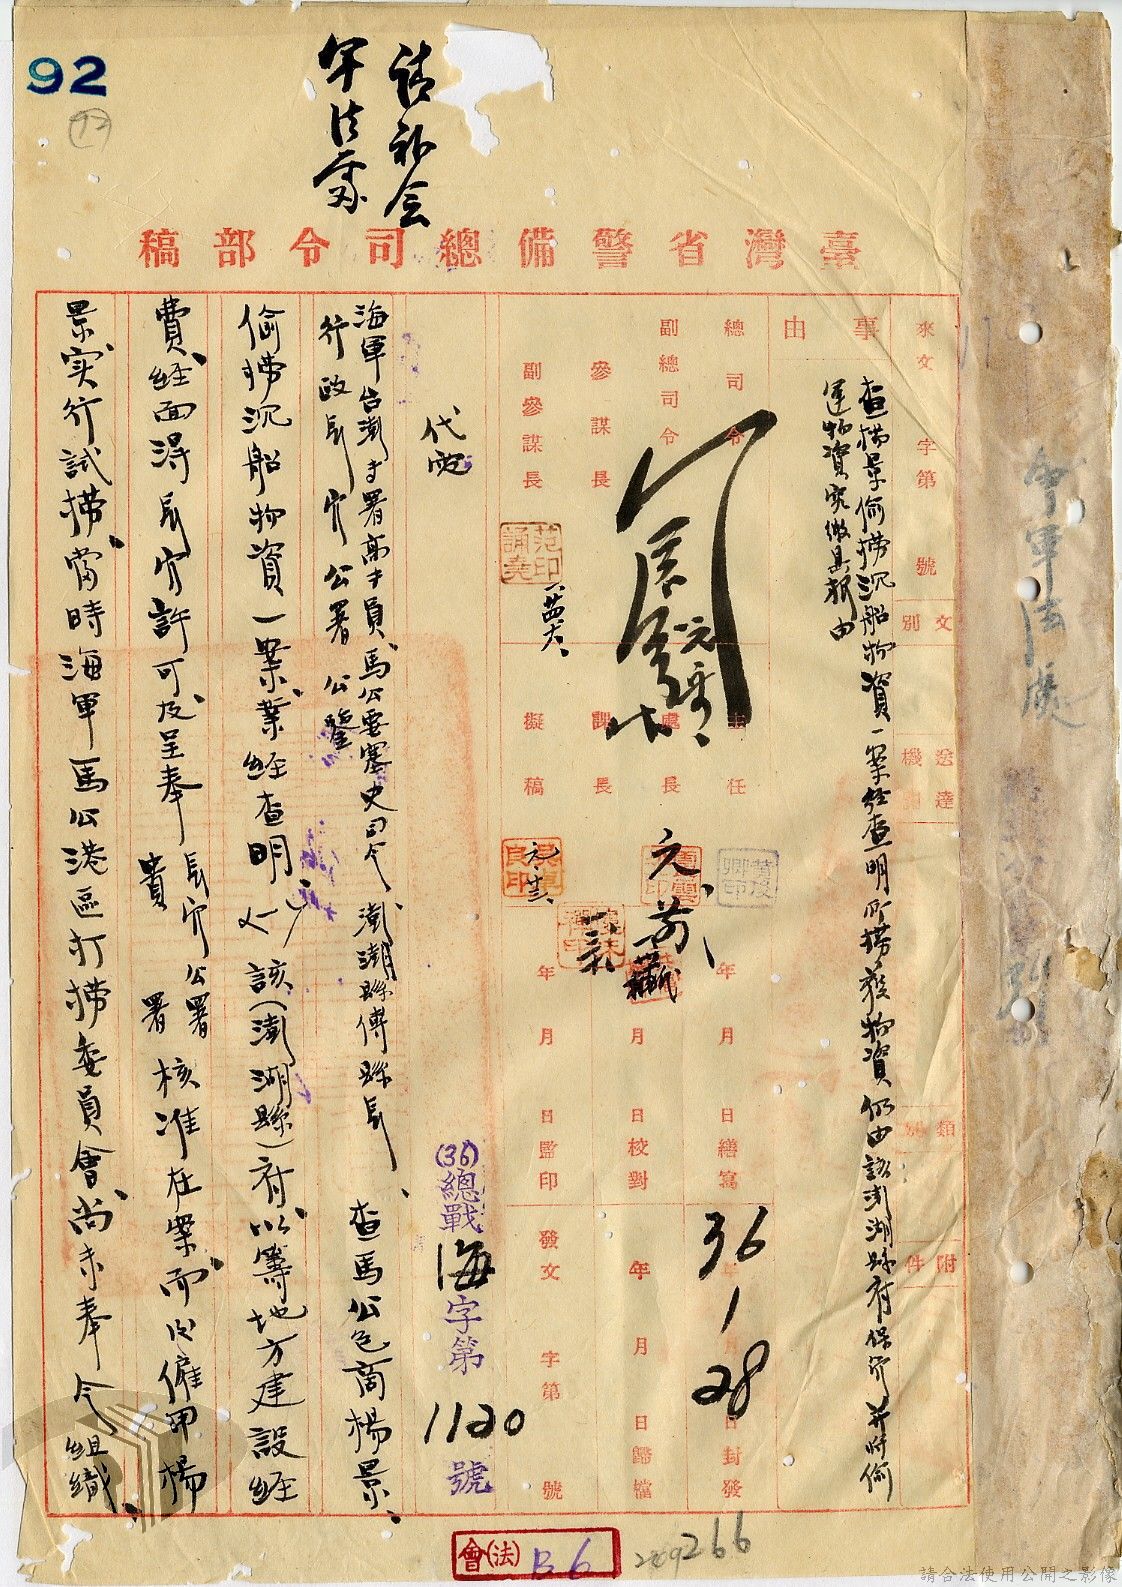 92
請補會
軍法處
臺灣省警備總司令部稿
來文 字第 號
文別
送達機關
類別
附件
事由
查楊景偷撈沉船物資一案經查明所撈獲物資仍由該澎湖縣府保管并將偷
運物資究繳具報由
總司令
副總司令
參謀長
副參謀長
主任
處長
課長
擬稿
年 月 日繕寫
年 月 日校對
年 月 日監印
36年1月28日封發
年 月 日歸檔
發文 字第 號
代電
(36)總戰海字第1120號
海軍台澎專署高專員、馬公要塞史司令、澎湖縣傅縣長、查馬公邑商楊景、
行政長官公署公鑒
偷撈沉船物資一案、業經查明、該(澎湖縣)府以籌地方建設經
費、經面得長官許可及呈奉 長官公署 貴署 核准在案、而雇用楊
景實行試撈、當時海軍馬公港區打撈委員會尚未奉令組織、
會(法)
B6
266
會軍法處
請合法使用公開之影像